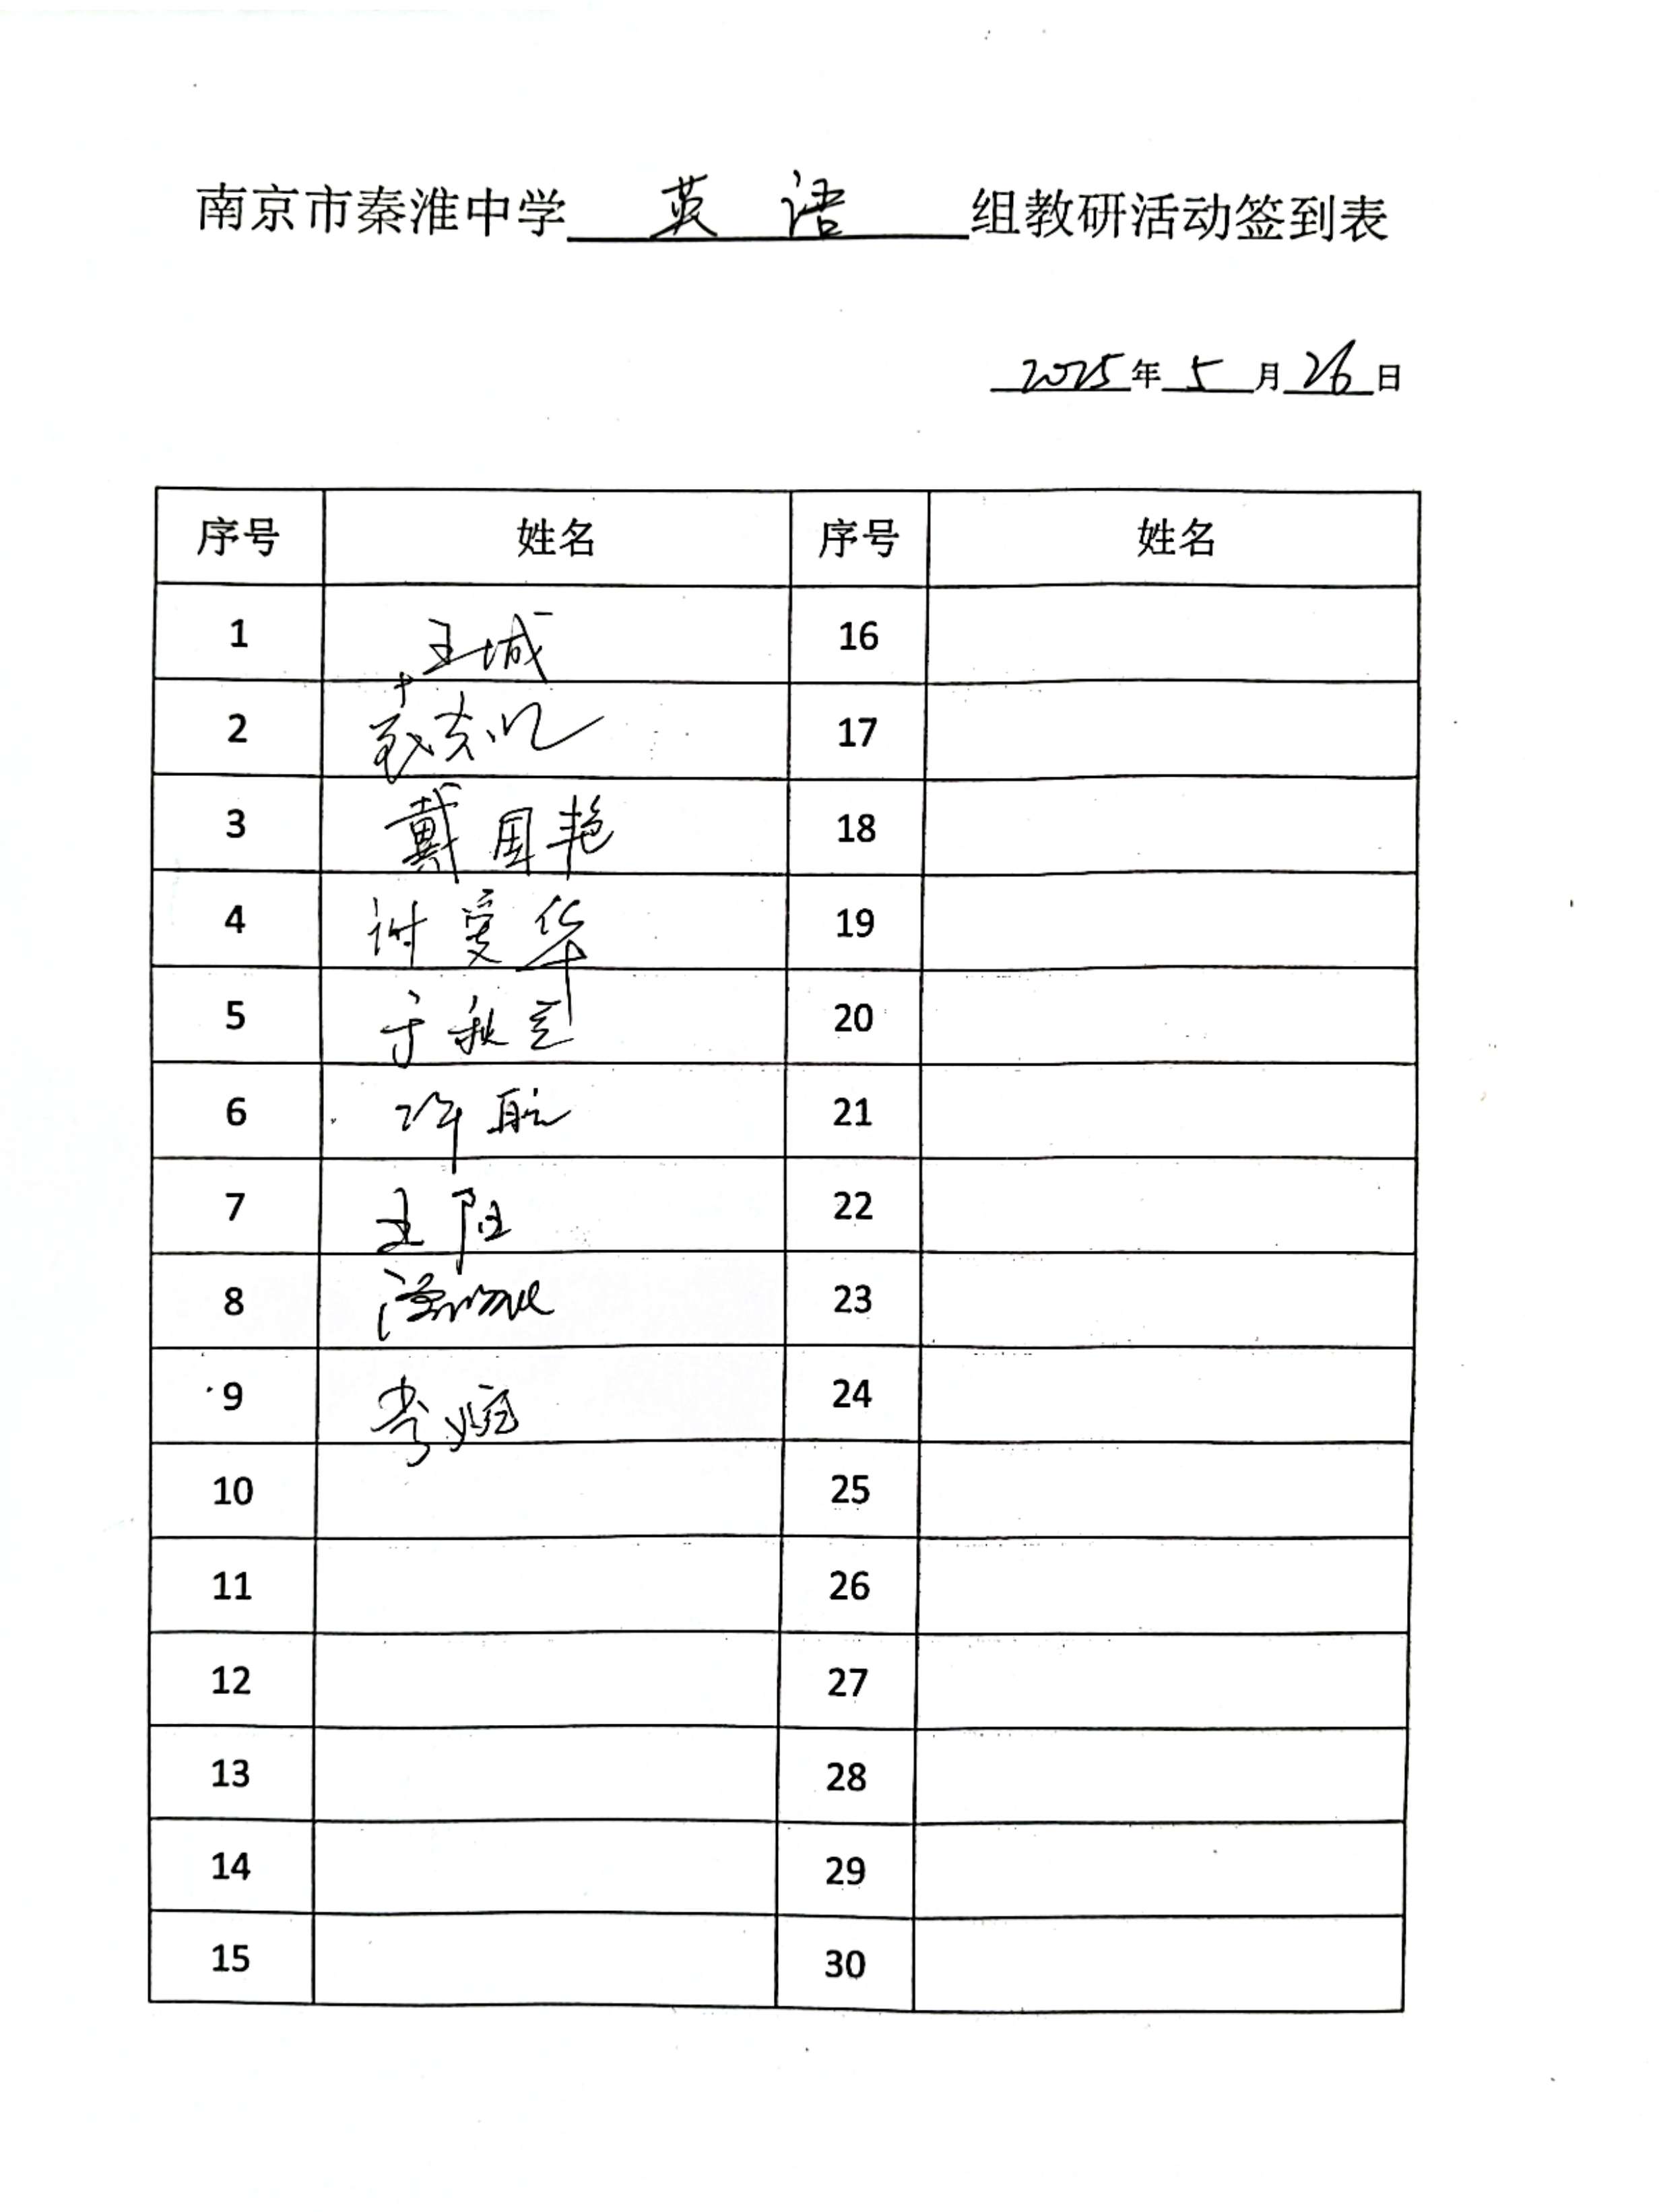 南京市秦淮中学 英语 组教研活动签到表
2025年 5 月 26 日
序号 姓名 序号 姓名
1 王城 16
2 17
3 戴国艳 18
4 谢爱华 19
5 于秋兰 20
6 许航 21
7 王阳 22
8 23
9 24
10 25
11 26
12 27
13 28
14 29
15 30